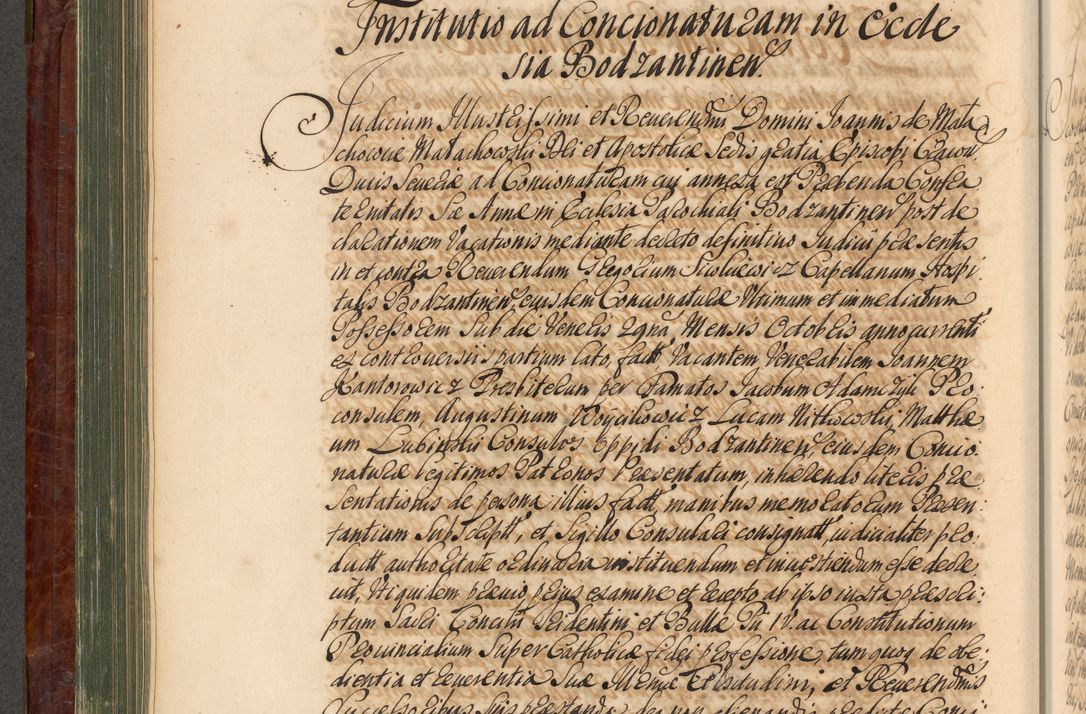 Institutio ad Concionaturam in Eccle
sia Bodzantinen.
Judicium Illustrissimi et Reverendssmi Domini Joannis de Mała
chowice Małachowski Dei et Apostolicæ Sedis gratia Episcopi Cracov.
Ducis Severiæ ad Concionaturam cui annexa est Præbenda Confra
ternitatis S̃æ Annæ in Ecclesia Parochiali Bodzantinen. post de
clarationem Vacationis mediante decreto definitivo Judicii præsentis
in et contra Reverendum Gregorium Capellanum Hospi
talis Bodzantinen. eiusdem Concionaturæ Ultimum et immediatum
Possessorem Sub die Veneris 2gna Mensis Octobris anno currenti
ex controversiis partium lato, fact. Vacantem Venerabilem Joannem
Kantorowicz Presbiterum per Famatos Jacobum Adamczyk Pro
consulem, Augustinum Woycikowicz Lucam Nitkowski, Matthæ
um Lubinski Consules Oppidi Bodzantinen. eiusdem Concio
naturæ legitimos Patronos Præsentatum, inhærendo literis præ
sentationis de persona illius fact. manibus memoratorum Præsen
tantium Subscript. et Sigillo Consulari consignatt. iudicialiter pro
ductt. authoritate ordinaria instituendum et investiendum esse decre
vit, Uti quidem prævio prius examine et recepto ab ipso iuxta præscri
ptum Sacri Concilii Tridentini et Bullæ Pii IV. ac Constitutionum
Provincialium Super Catholicæ fidei professione, tum quoq. de obe
dientia et reverentia Suæ Illmæ Celsitudini, et Reverendssmis
Successoribus Suis præstanda